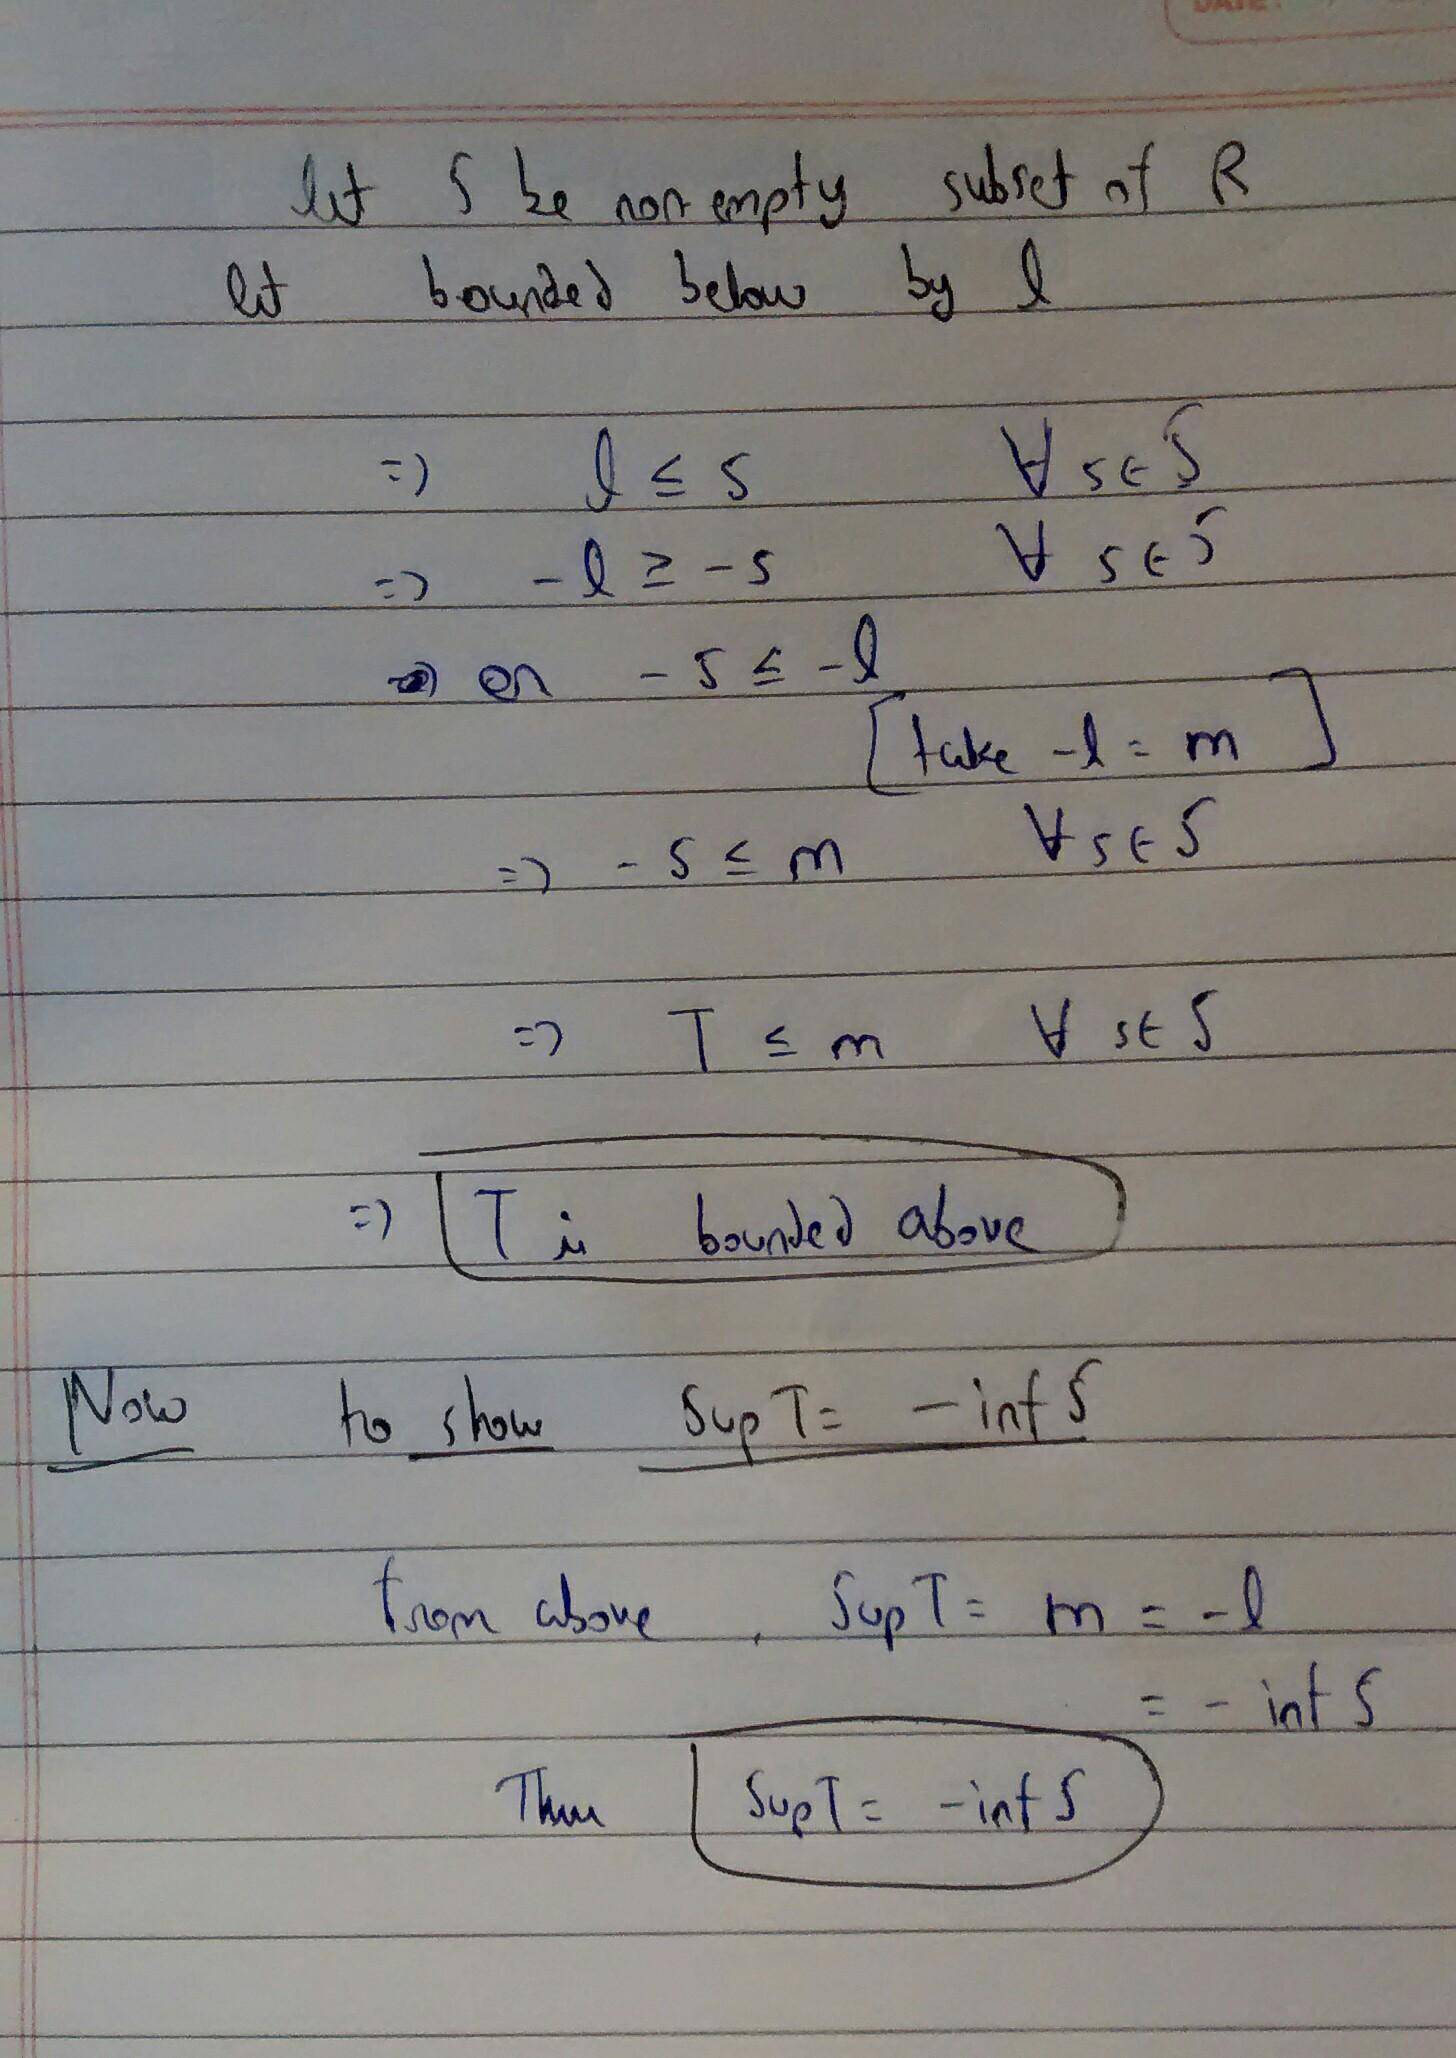 DATE:
let S be non empty subset of R
let bounded below by l
=> l ≤ s ∀ s ∈ S
=> -l ≥ -s ∀ s ∈ S
or -s ≤ -l
[take -l = m]
=> -s ≤ m ∀ s ∈ S
=> T ≤ m ∀ s ∈ S
=> T is bounded above
Now to show Sup T = - inf S
from above, Sup T = m = -l
= - inf S
Thus Sup T = - inf S